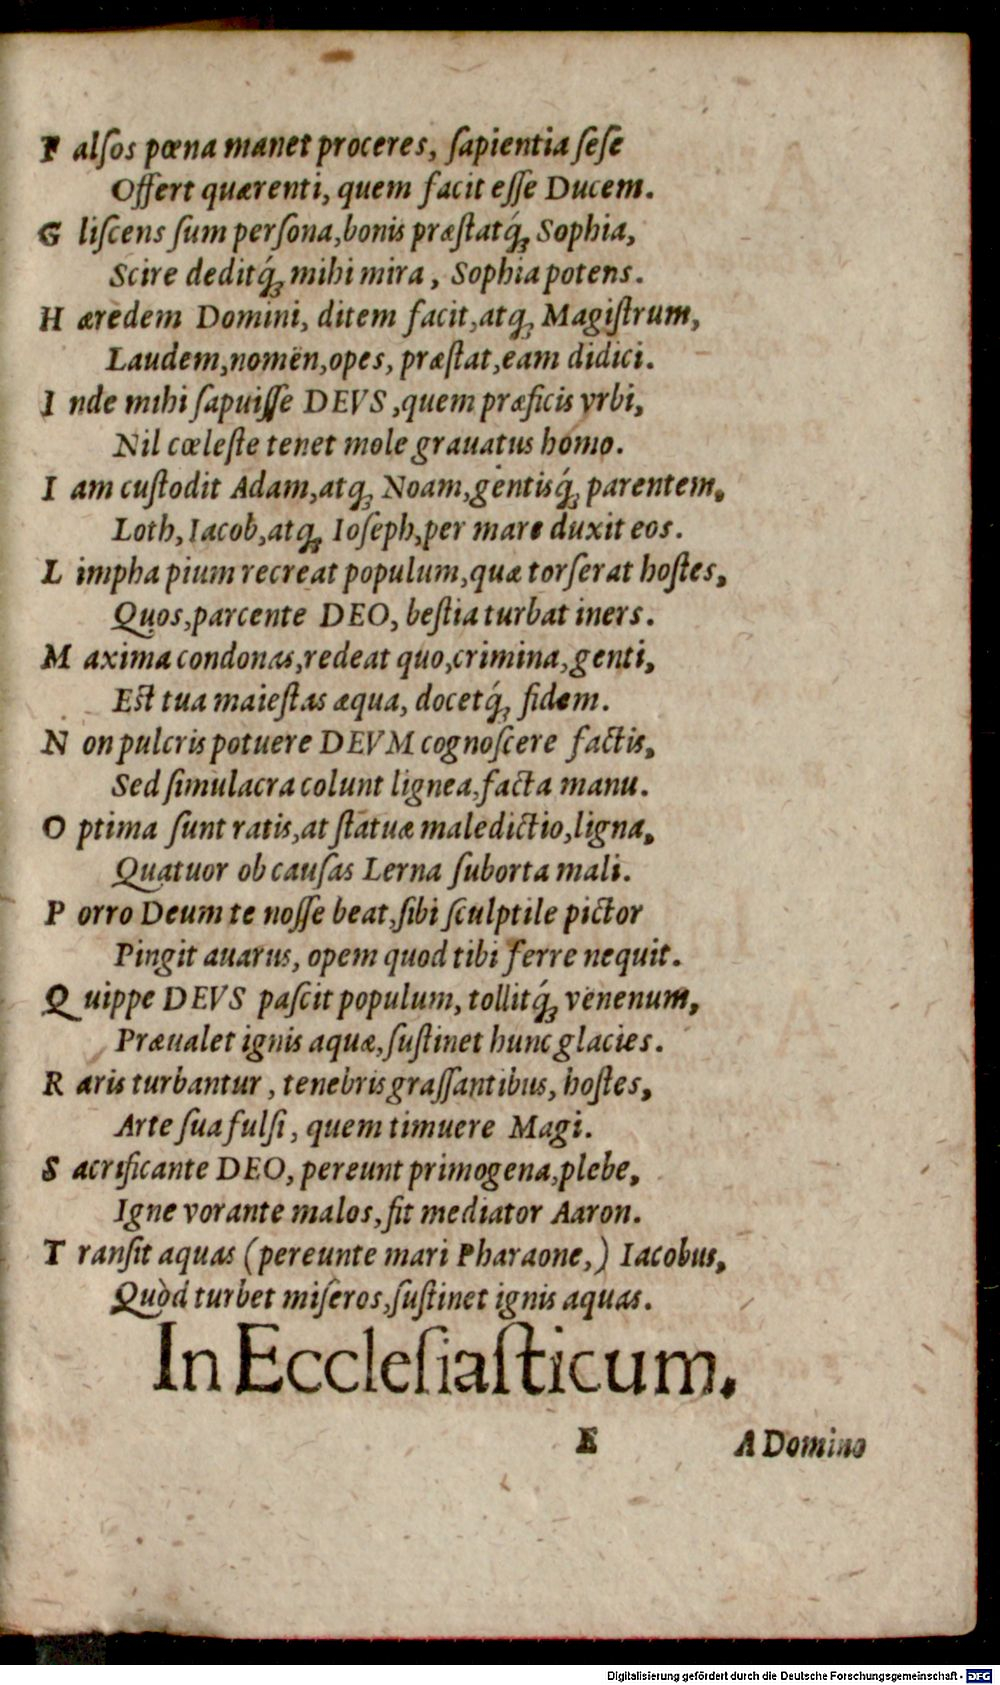 F alſos pœna manet proceres, ſapientia ſeſe
Offert quærenti, quem facit eſſe Ducem.
G liſcens ſum perſona,bonis præſtatq́ꝫ Sophia,
Scire deditq́ꝫ mihi mira, Sophia potens.
H æredem Domini, ditem facit,atqꝫ Magiſtrum,
Laudem,nomen,opes, præſtat,eam didici.
I nde mihi ſapuiſſe DEVS ,quem præficis vrbi,
Nil cœleſte tenet mole grauatus homo.
I am cuſtodit Adam,atqꝫ Noam,gentisq́ꝫ parentem,
Loth,Iacob,atqꝫ Ioſeph,per mare duxit eos.
L impha pium recreat populum,quæ torſerat hoſtes,
Quos,parcente DEO, beſtia turbat iners.
M axima condonas,redeat quo,crimina,genti,
Eſt tua maieſtas æqua, docetq́ꝫ fidem.
N on pulcris potuere DEVM cognoſcere factis,
Sed ſimulacra colunt lignea,facta manu.
O ptima ſunt ratis,at ſtatuæ maledictio,ligna,
Quatuor ob cauſas Lerna ſuborta mali.
P orro Deum te noſſe beat,ſibi ſculptile pictor
Pingit auarus, opem quod tibi ferre nequit.
Q uippe DEVS paſcit populum, tollitq́ꝫ venenum,
Præualet ignis aquæ,ſuſtinet hunc glacies.
R aris turbantur, tenebris graſſantibus, hoſtes,
Arte ſua fulſi, quem timuere Magi.
S acrificante DEO, pereunt primogena,plebe,
Igne vorante malos,fit mediator Aaron.
T ranſit aquas (pereunte mari Pharaone,) Iacobus,
Quòd turbet miſeros,ſuſtinet ignis aquas.
In Eccleſiaſticum.
E A Domino
Digitalisierung gefördert durch die Deutsche Forschungsgemeinschaft - DFG